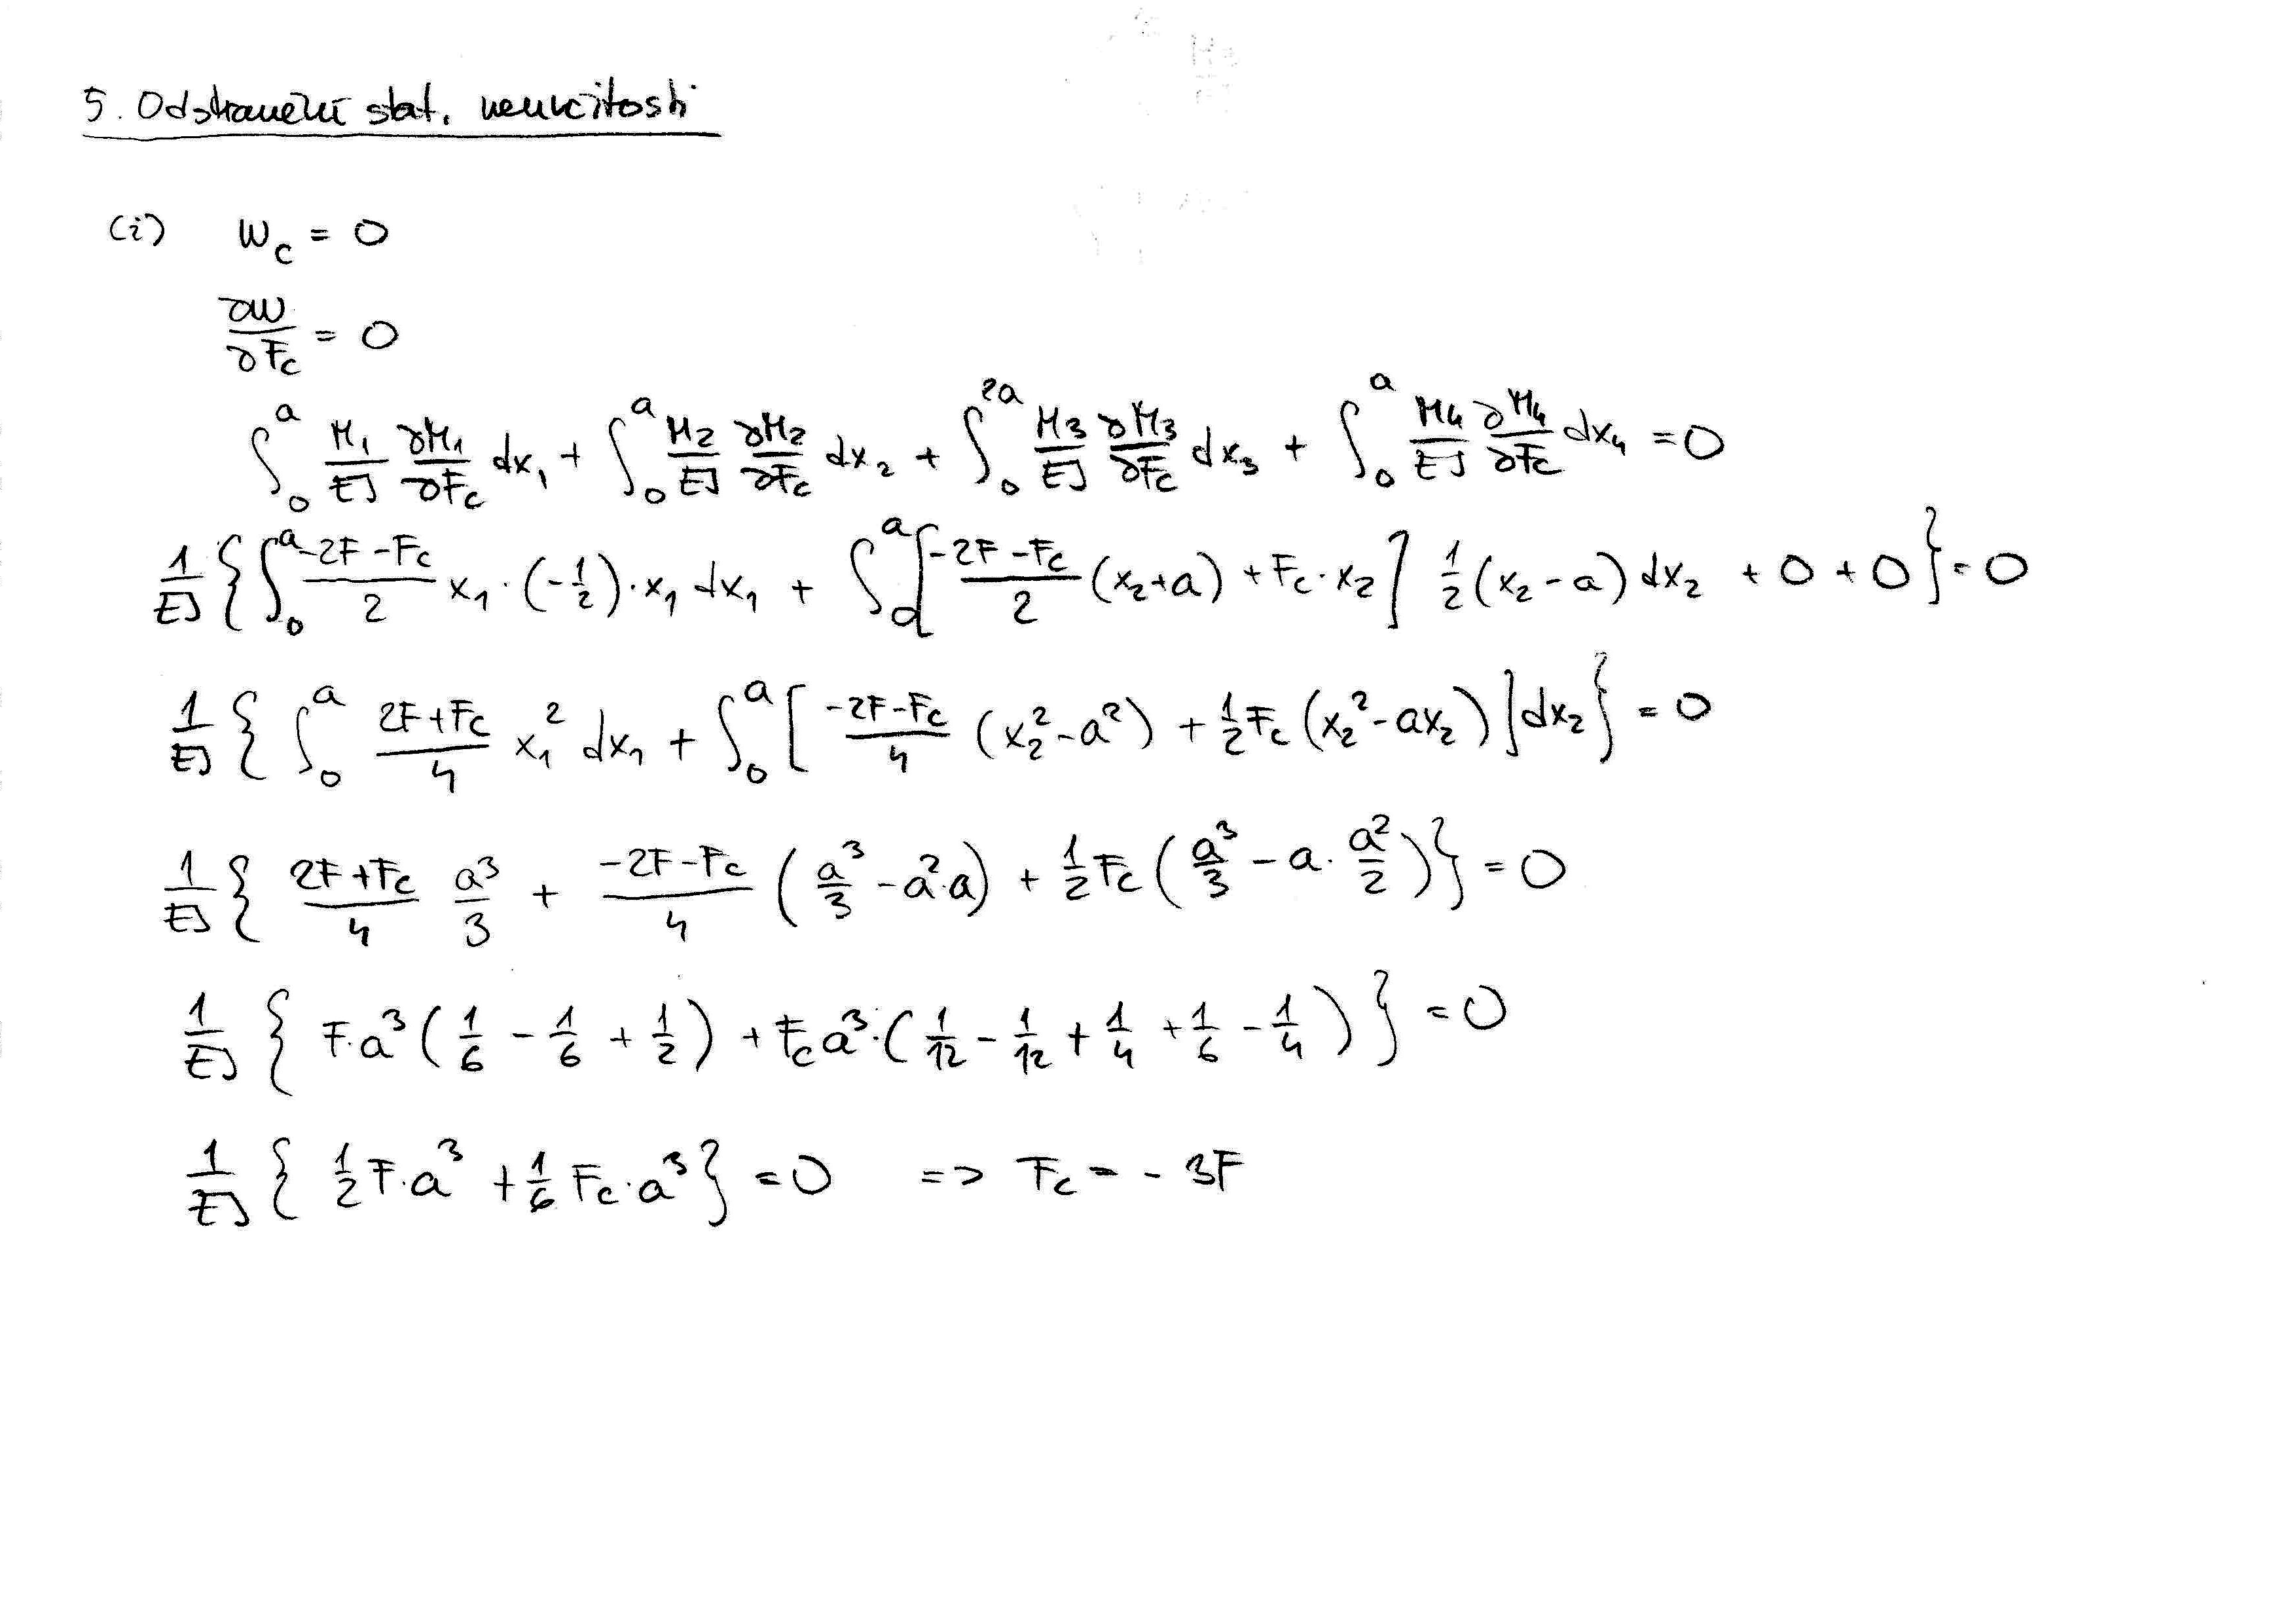 5. Odstranění stat. neurčitosti
(i) w_c = 0
∂W/∂F_c = 0
∫₀^a M₁/EJ ∂M₁/∂F_c dx₁ + ∫₀^a M₂/EJ ∂M₂/∂F_c dx₂ + ∫₀^2a M₃/EJ ∂M₃/∂F_c dx₃ + ∫₀^a M₄/EJ ∂M₄/∂F_c dx₄ = 0
1/EJ { ∫₀^a (-2F-F_c)/2 x₁·(-1/2)·x₁ dx₁ + ∫₀^a [ (-2F-F_c)/2 (x₂+a) + F_c·x₂ ] 1/2 (x₂-a) dx₂ + 0 + 0 } = 0
1/EJ { ∫₀^a (2F+F_c)/4 x₁² dx₁ + ∫₀^a [ (-2F-F_c)/4 (x₂²-a²) + 1/2 F_c (x₂²-ax₂) ] dx₂ } = 0
1/EJ { (2F+F_c)/4 a³/3 + (-2F-F_c)/4 ( a³/3 - a²·a ) + 1/2 F_c ( a³/3 - a· a²/2 ) } = 0
1/EJ { F·a³ ( 1/6 - 1/6 + 1/2 ) + F_c a³·( 1/12 - 1/12 + 1/4 + 1/6 - 1/4 ) } = 0
1/EJ { 1/2 F·a³ + 1/6 F_c·a³ } = 0 => F_c = - 3F